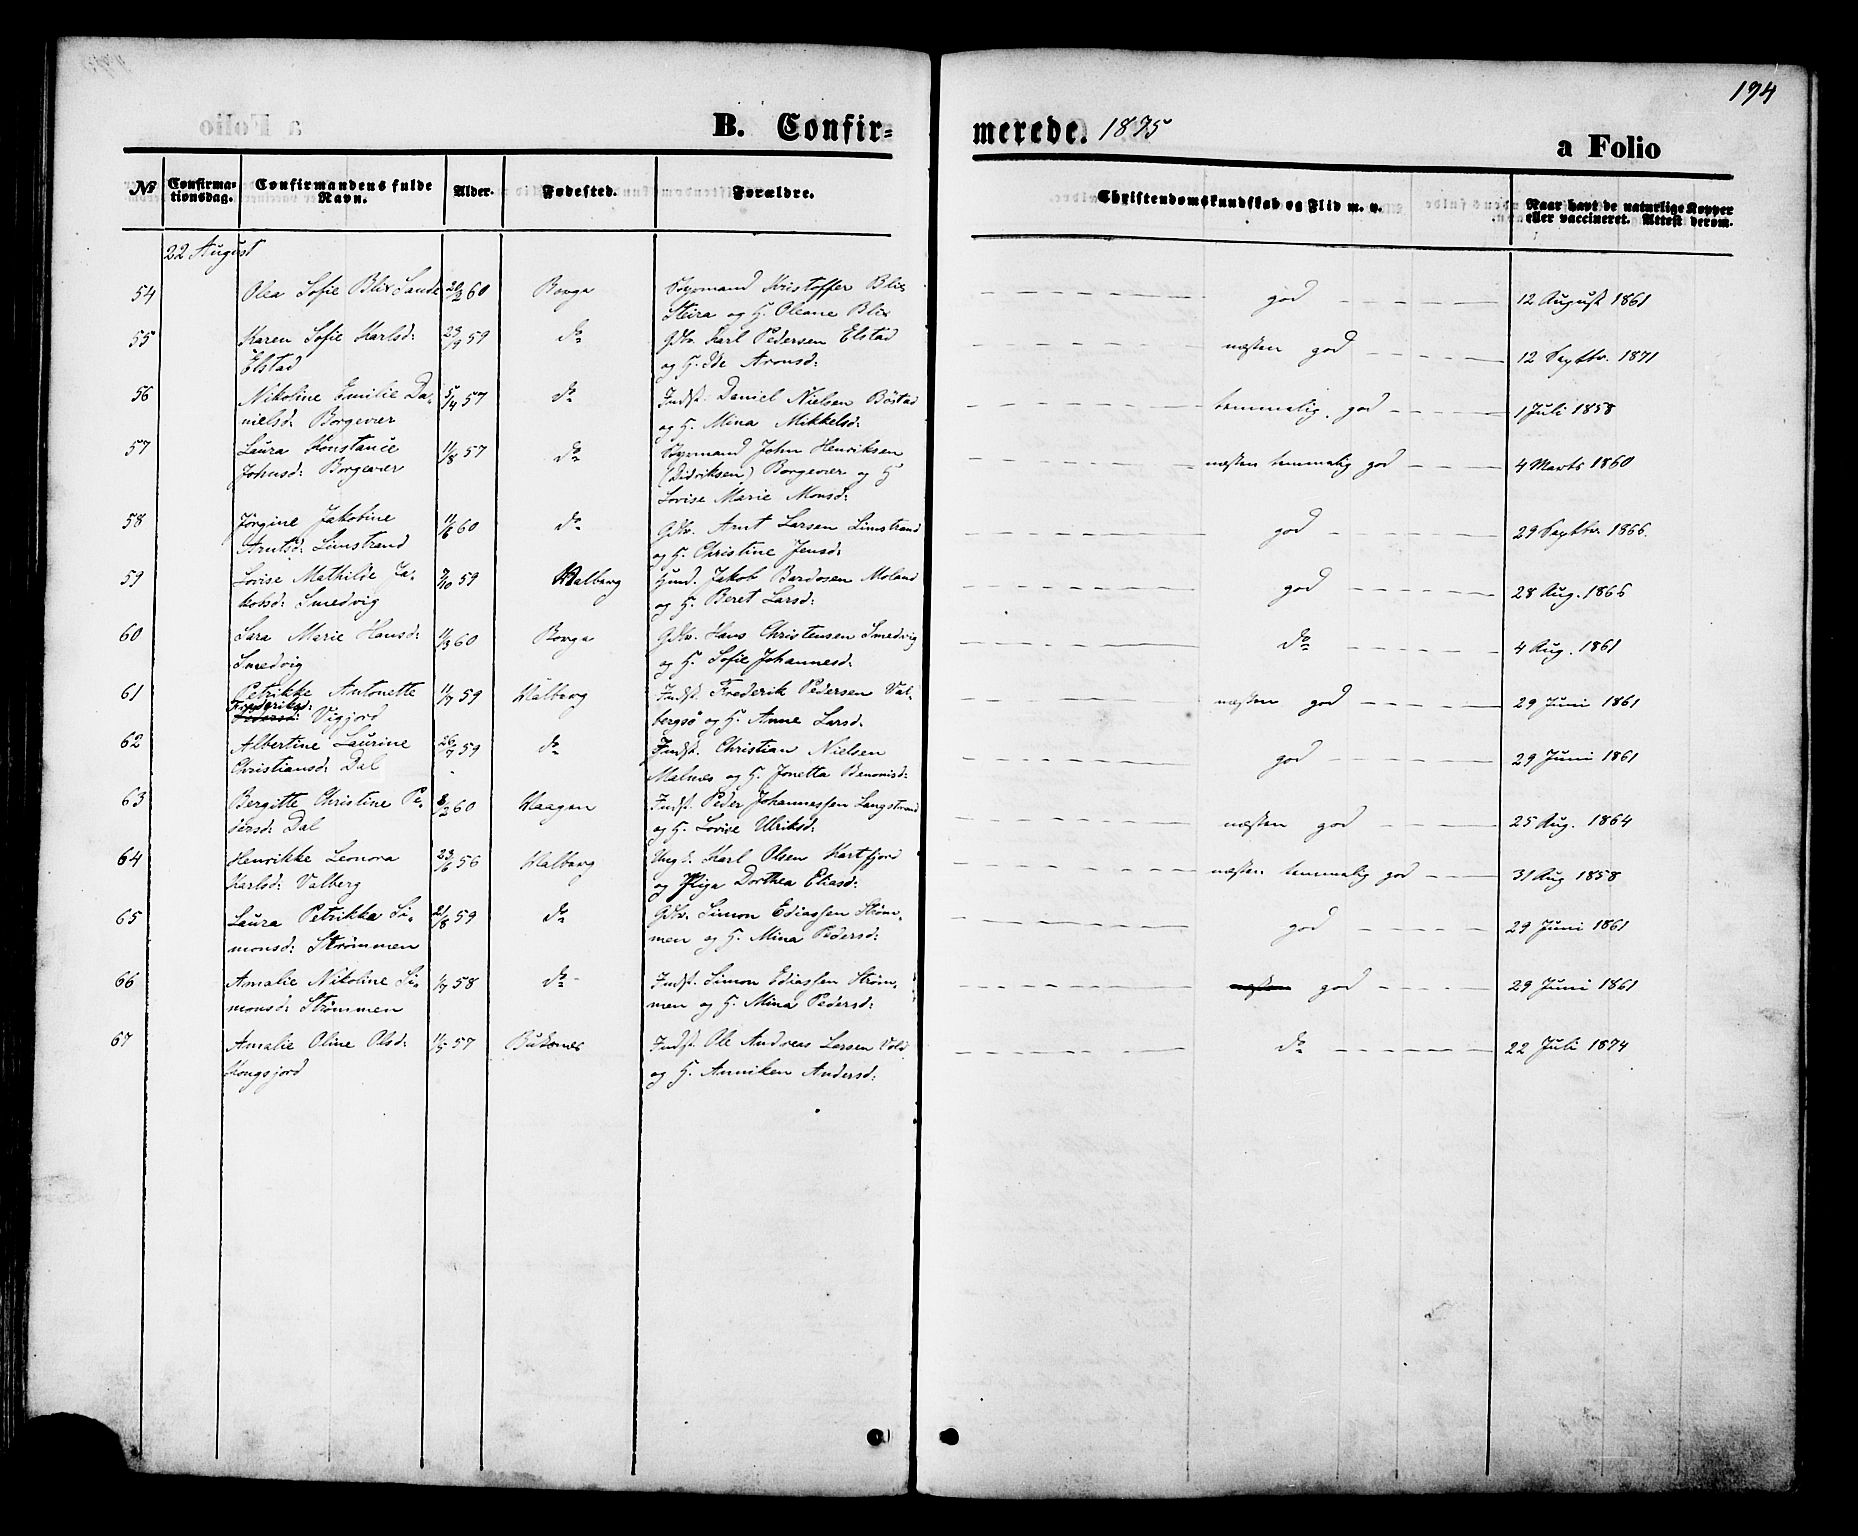 194
B. Confir-
merede. 1875
a Folio
No
Confirma-
tionsdag.
Confirmandens fulde
Navn.
Alder.
Fødested.
Forældre.
Christendomskundskab og Flid m. v.
Naar havt de naturlige Kopper
eller vaccineret. Attest derom.
22 August
54 Olea Sofie Blix Sande 20/2 60 Borge Kristoffer Blix god 12 August 1861
Steira og H. Oleane Blix
55 Karen Sofie Karlsd: 23/9 59 do Gbr. Karl Pedersen Elstad næsten god 12 Septbr. 1871
Elstad og H. Ide Aronsd:
56 Nikoline Emilie Da- 5/4 57 do Indst. Daniel Nielsen Bøstad temmelig god 1 Juli 1858
nielsd: Borgevær og H. Mina Mikkelsd:
57 Laura Konstance 11/8 57 do John Henriksen næsten temmelig god 4 Marts 1860
Johnsd: Borgevær (Didriksen) Borgevær og H
Lovise Marie Monsd:
58 Jørgine Jakobine 11/6 60 do Gbr. Arnt Larsen Limstrand god 29 Septbr. 1866.
Arntsd: Limstrand og H. Christine Jensd:
59 Lovise Mathilde Ja- 7/10 59 Valberg Jakob Bardosen Moland god 28 Aug. 1866
kobsd: Smedvig og H. Beret Larsd:
60 Sara Marie Hansd: 11/3 60 Borge Gbr. Hans Christensen Smedvig do 4 Aug. 1861
Smedvig og H. Sofie Johannesd:
61 Petrikke Antonette 11/7 59 Valberg Indst. Frederik Pedersen Val- næsten god 29 Juni 1861
Frederiksd:
Pedersd: Vigjord bergsø og H. Anne Larsd:
62 Albertine Laurine 26/7 59 do Indst. Christian Nielsen god 29 Juni 1861
Christiansd: Dal Malnes og H. Jonetta Benonisd:
63 Bergitte Christine Pe- 8/2 60 Vaagen Indst. Peder Johannessen Langstrand næsten god 25 Aug. 1864
dersd: Dal og H. Lovise Ulriksd:
64 Henrikke Leonora 23/6 56 Valberg Ung. Karl Olsen Kartfjord næsten temmelig god 31 Aug 1858
Karlsd: Valberg og Piga Dorthea Eliasd:
65 Laura Petrikka Si- 21/8 59 do Gbr. Simon Ediassen Strøm- god 29 Juni 1861
monsd: Strømmen men og H. Mina Pedersd:
66 Amalie Nikoline Si- 1/7 58 do Indst. Simon Ediassen Strøm- næsten god 29 Juni 1861
monsd: Strømmen men og H. Mina Pedersd:
67 Amalie Oline Olsd: 11/5 57 Buksnes Indst. Ole Andreas Larsen Vold do 22 Juli 1874
Kongsjord og H. Anniken Andersd: